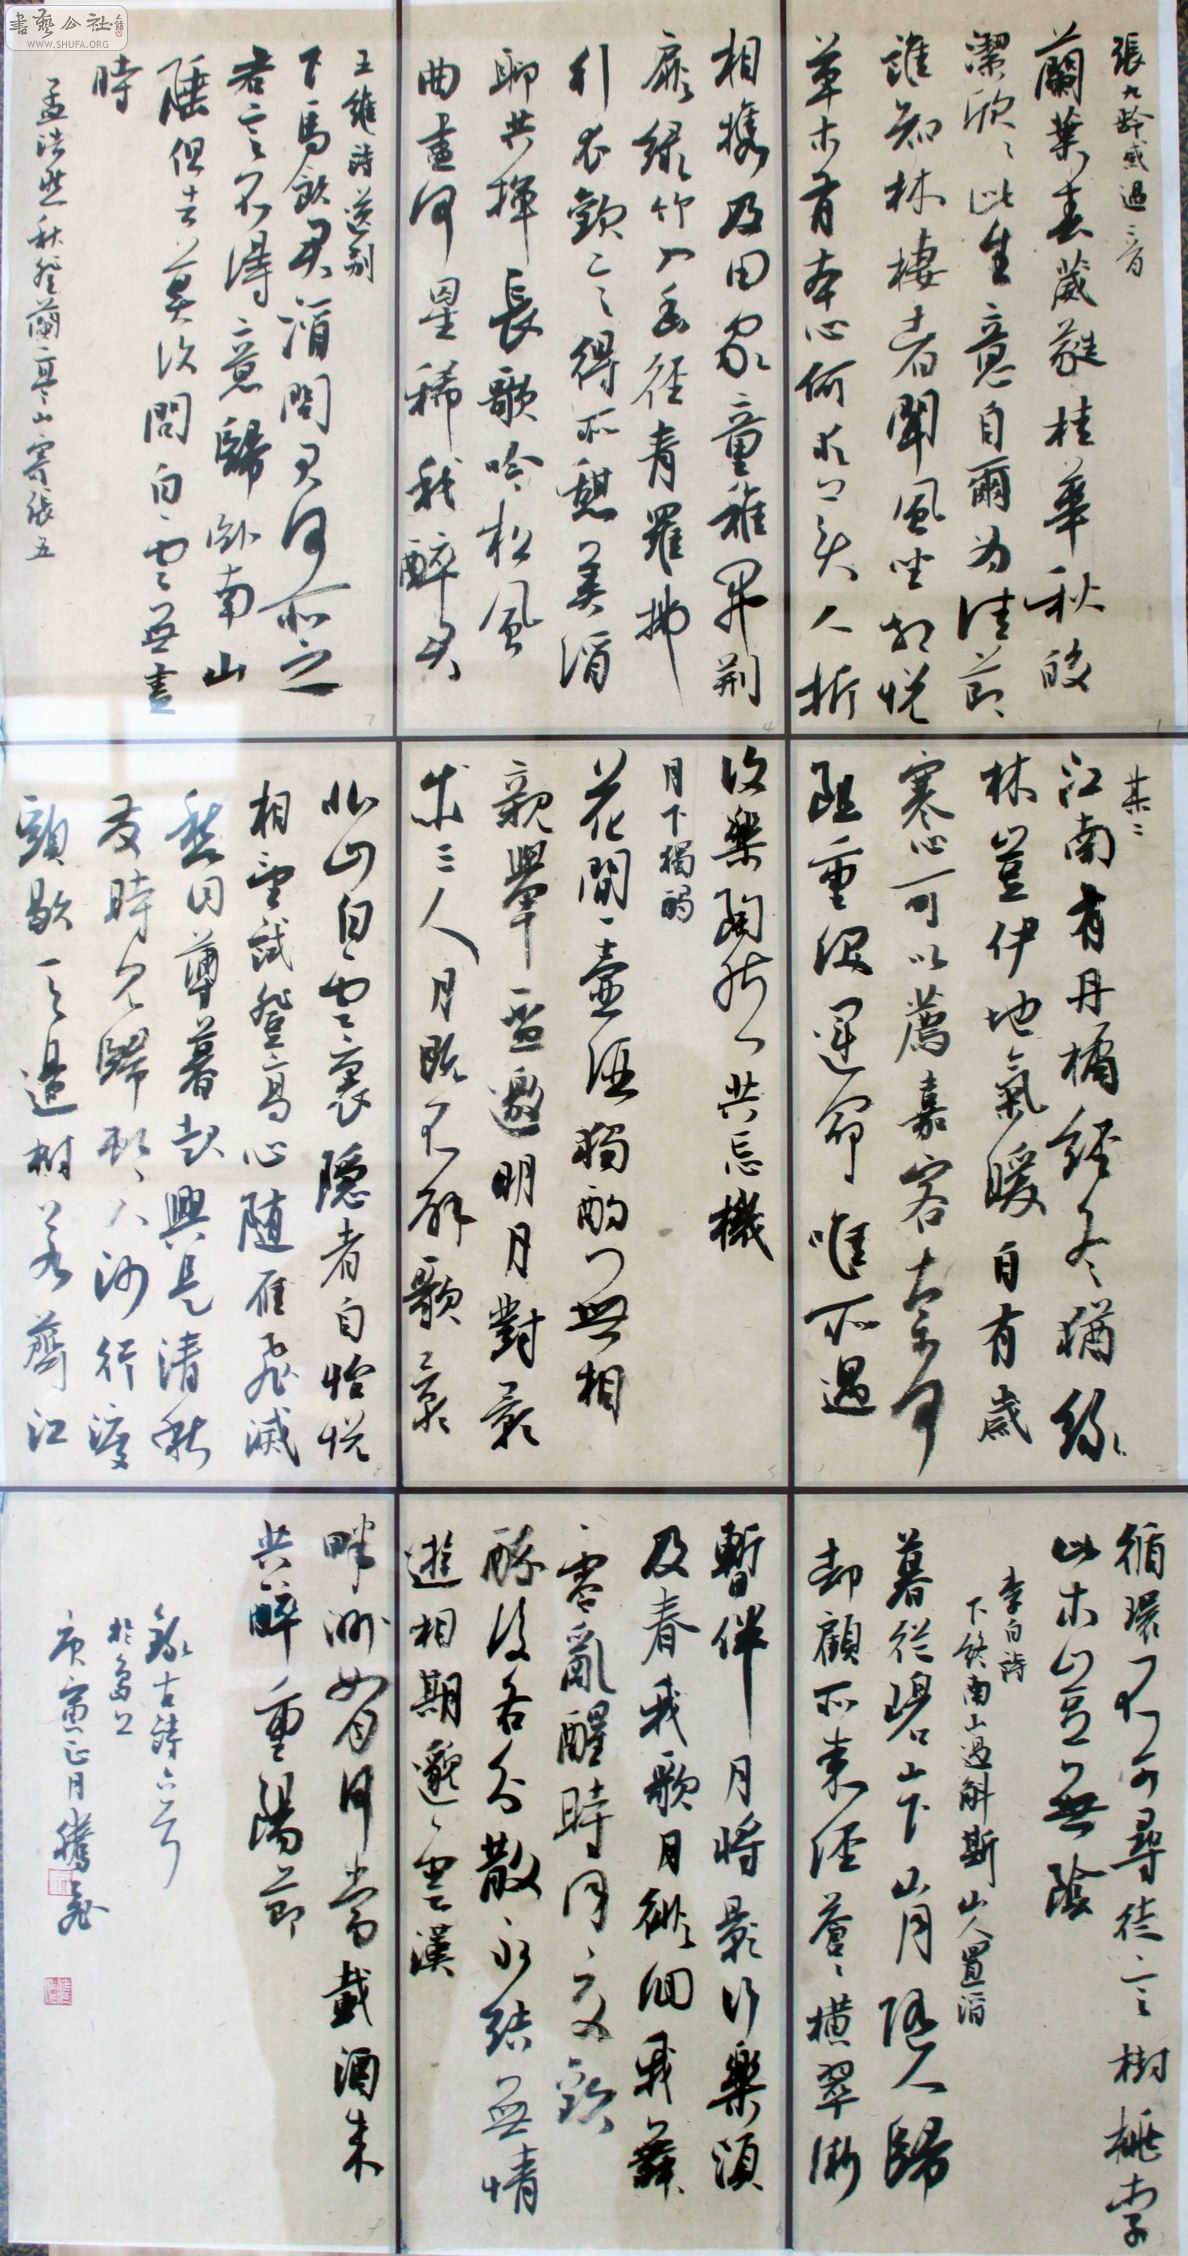 書藝公社
WWW.SHUFA.ORG
張九齡感遇二首
蘭葉春葳蕤桂華秋皎
潔欣々此生意自爾為佳節
誰知林棲者聞風坐相悅
草木有本心何求美人折
其二
江南有丹橘經冬猶綠
林豈伊地氣暖自有歲
寒心可以薦嘉客奈何
阻重深運命唯所遇
循環不可尋徒言樹桃李
此木豈無陰
李白詩
下終南山過斛斯山人置酒
暮從碧山下山月隨人歸
却顧所來徑蒼々橫翠微
相攜及田家童稚開荊
扉綠竹入幽徑青蘿拂
行衣歡言得所憩美酒
聊共揮長歌吟松風
曲盡河星稀我醉君
復樂陶然共忘機
月下獨酌
花間一壺酒獨酌無相
親舉盃邀明月對影
成三人月既不解歌影
暫伴月將影行樂須
及春我歌月徘徊我舞
零亂醒時同交歡
醉後各分散永結無情
遊相期邈雲漢
王維詩送別
下馬飲君酒問君何所之
君言不得意歸臥南山
陲但去莫復問白雲無盡
時
孟浩然秋登蘭亭山寄張五
北山白雲裏隱者自怡悅
相望試登高心隨雁飛滅
愁因薄暮起興是清秋
發時見歸村人沙行渡
頭歇天邊樹若薺江
畔洲如月何當載酒來
共醉重陽節
錄古詩六首
於島上
庚寅正月騰飛